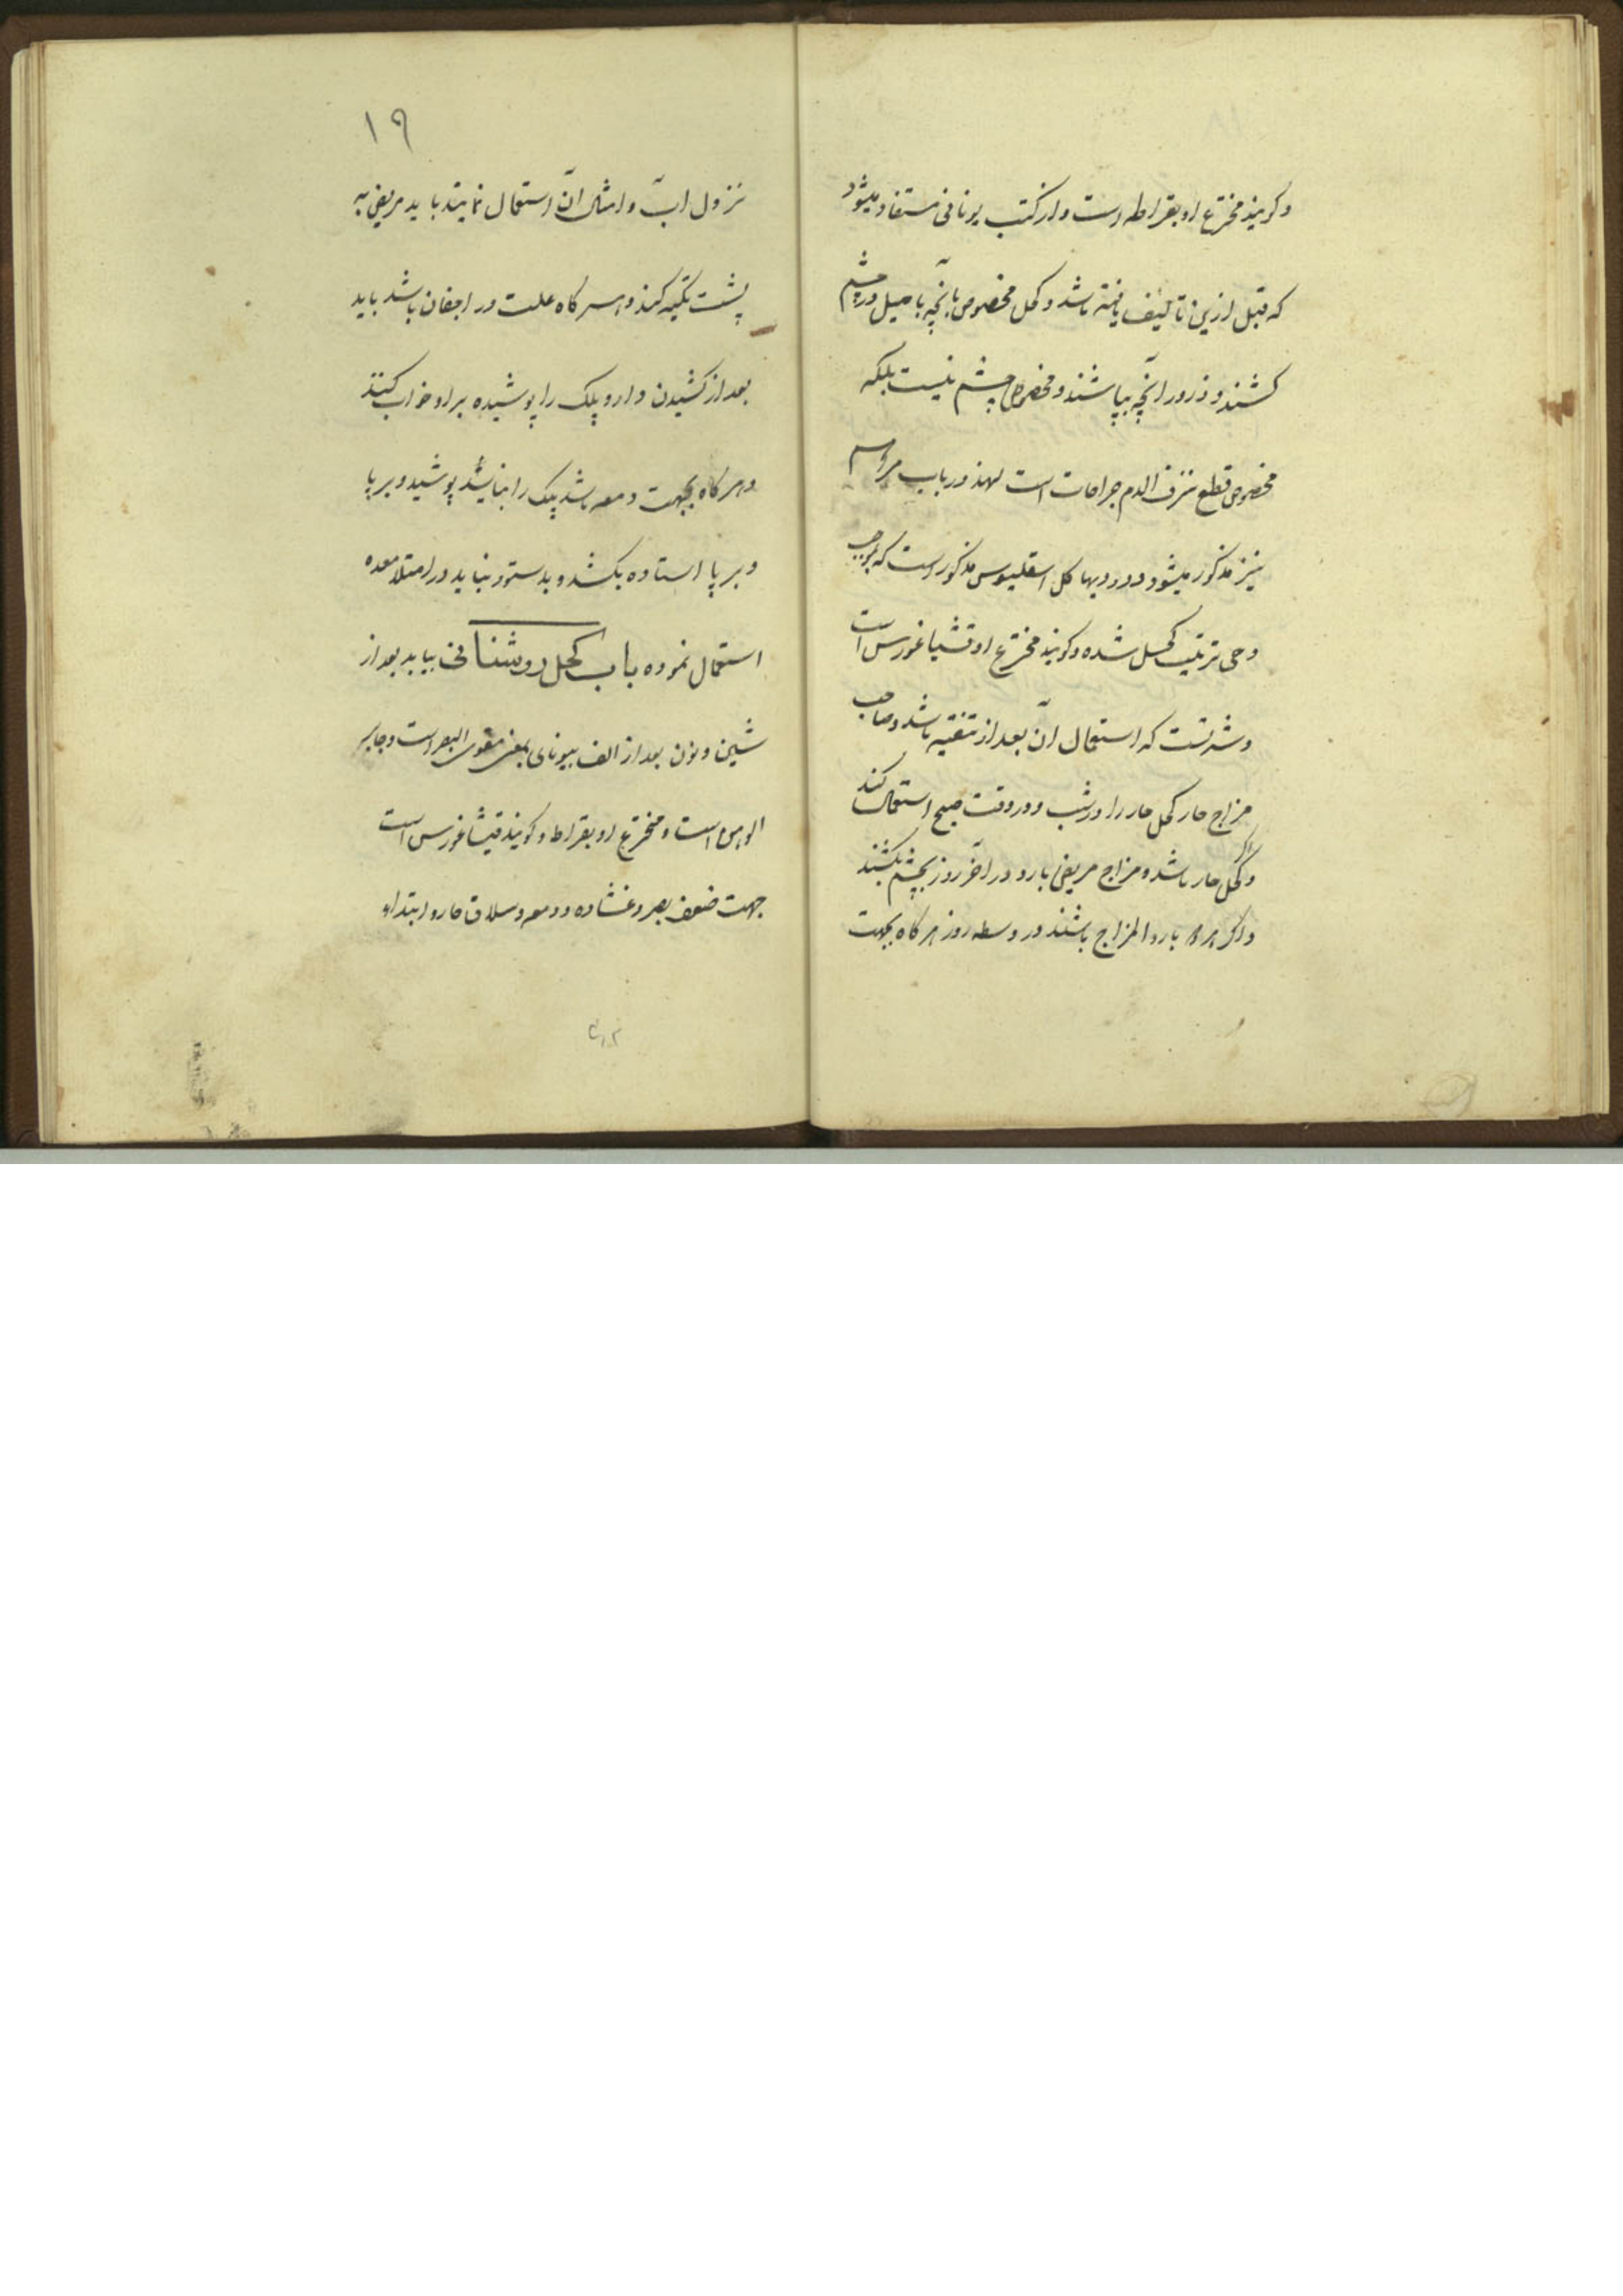 وکویند مخترع او بقراطه است و از کتب یونانی مستفاد میشود
که قبل ازین تالیف یافته باشد و کحل مخصوص بانچه با میل در چشم
کشند و ذرور آنچه بپاشند و مخصوص چشم نیست بلکه
مخصوص قطع نزف الدم جراحات است لهذا در باب مراهم
نیز مذکور میشود و در دیهاکل اسقلیوس مذکور است که بموجب
وحی ترتیب کحل شده و کویند مخترع او قیثاغورس است
و شرتست که استعمال آن بعد از تنقیه باشد و صاحب
مزاج حار کحل حار را در شب و در وقت صبح استعمال کند
و اگر کحل حار باشد و مزاج مریض بارد در آخر روز بچشم بکشند
و اکر هر دو بارد المزاج باشند در وسط روز هر کاه بجهت
۱۹
نزول آب و امثال آن استعمال نمایند باید مریض به
پشت تکیه کند و هر کاه علت در اجفان باشد باید
بعد از کشیدن دارو پلک را پوشیده بر او خواب کنند
و هر کاه بجهت دمعه باشد پلک را نباید پوشید و بر پا
و بر پا استاده بکشد و بدستور نباید در امتلا معده
استعمال نموده باب کحل روشنائی بباید بعد از
شین و نون بعد از الف بیونانی بمعنی مقوی البصر است و جابر
الوهن است و مخترع او بقراط و کویند قیثاغورس است
جهت ضعف بصر و غشاوه و دمعه و سلاق حار و ابتداء